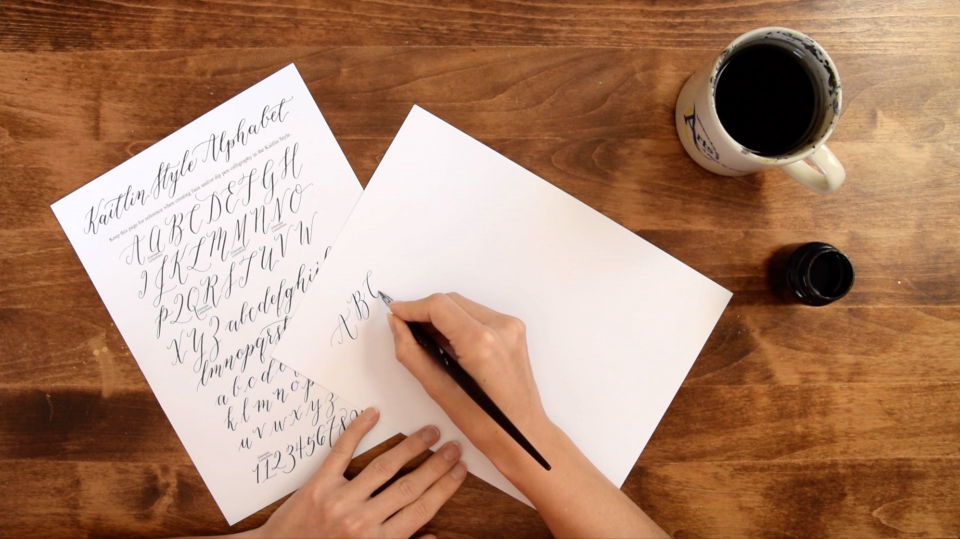 Kaitlin Style Alphabet
Keep this page for reference when creating faux and/or dip pen calligraphy in the Kaitlin Style.
A A B C D E F G H
I J K L M M N N O
P Q Q R R S T U V W
X Y Z a b c d e f g h i
l m n o p q r s t
a b c d
k l m n o p
u v w x y z
1 1 2 3 4 5 6 7 8 9
A B C